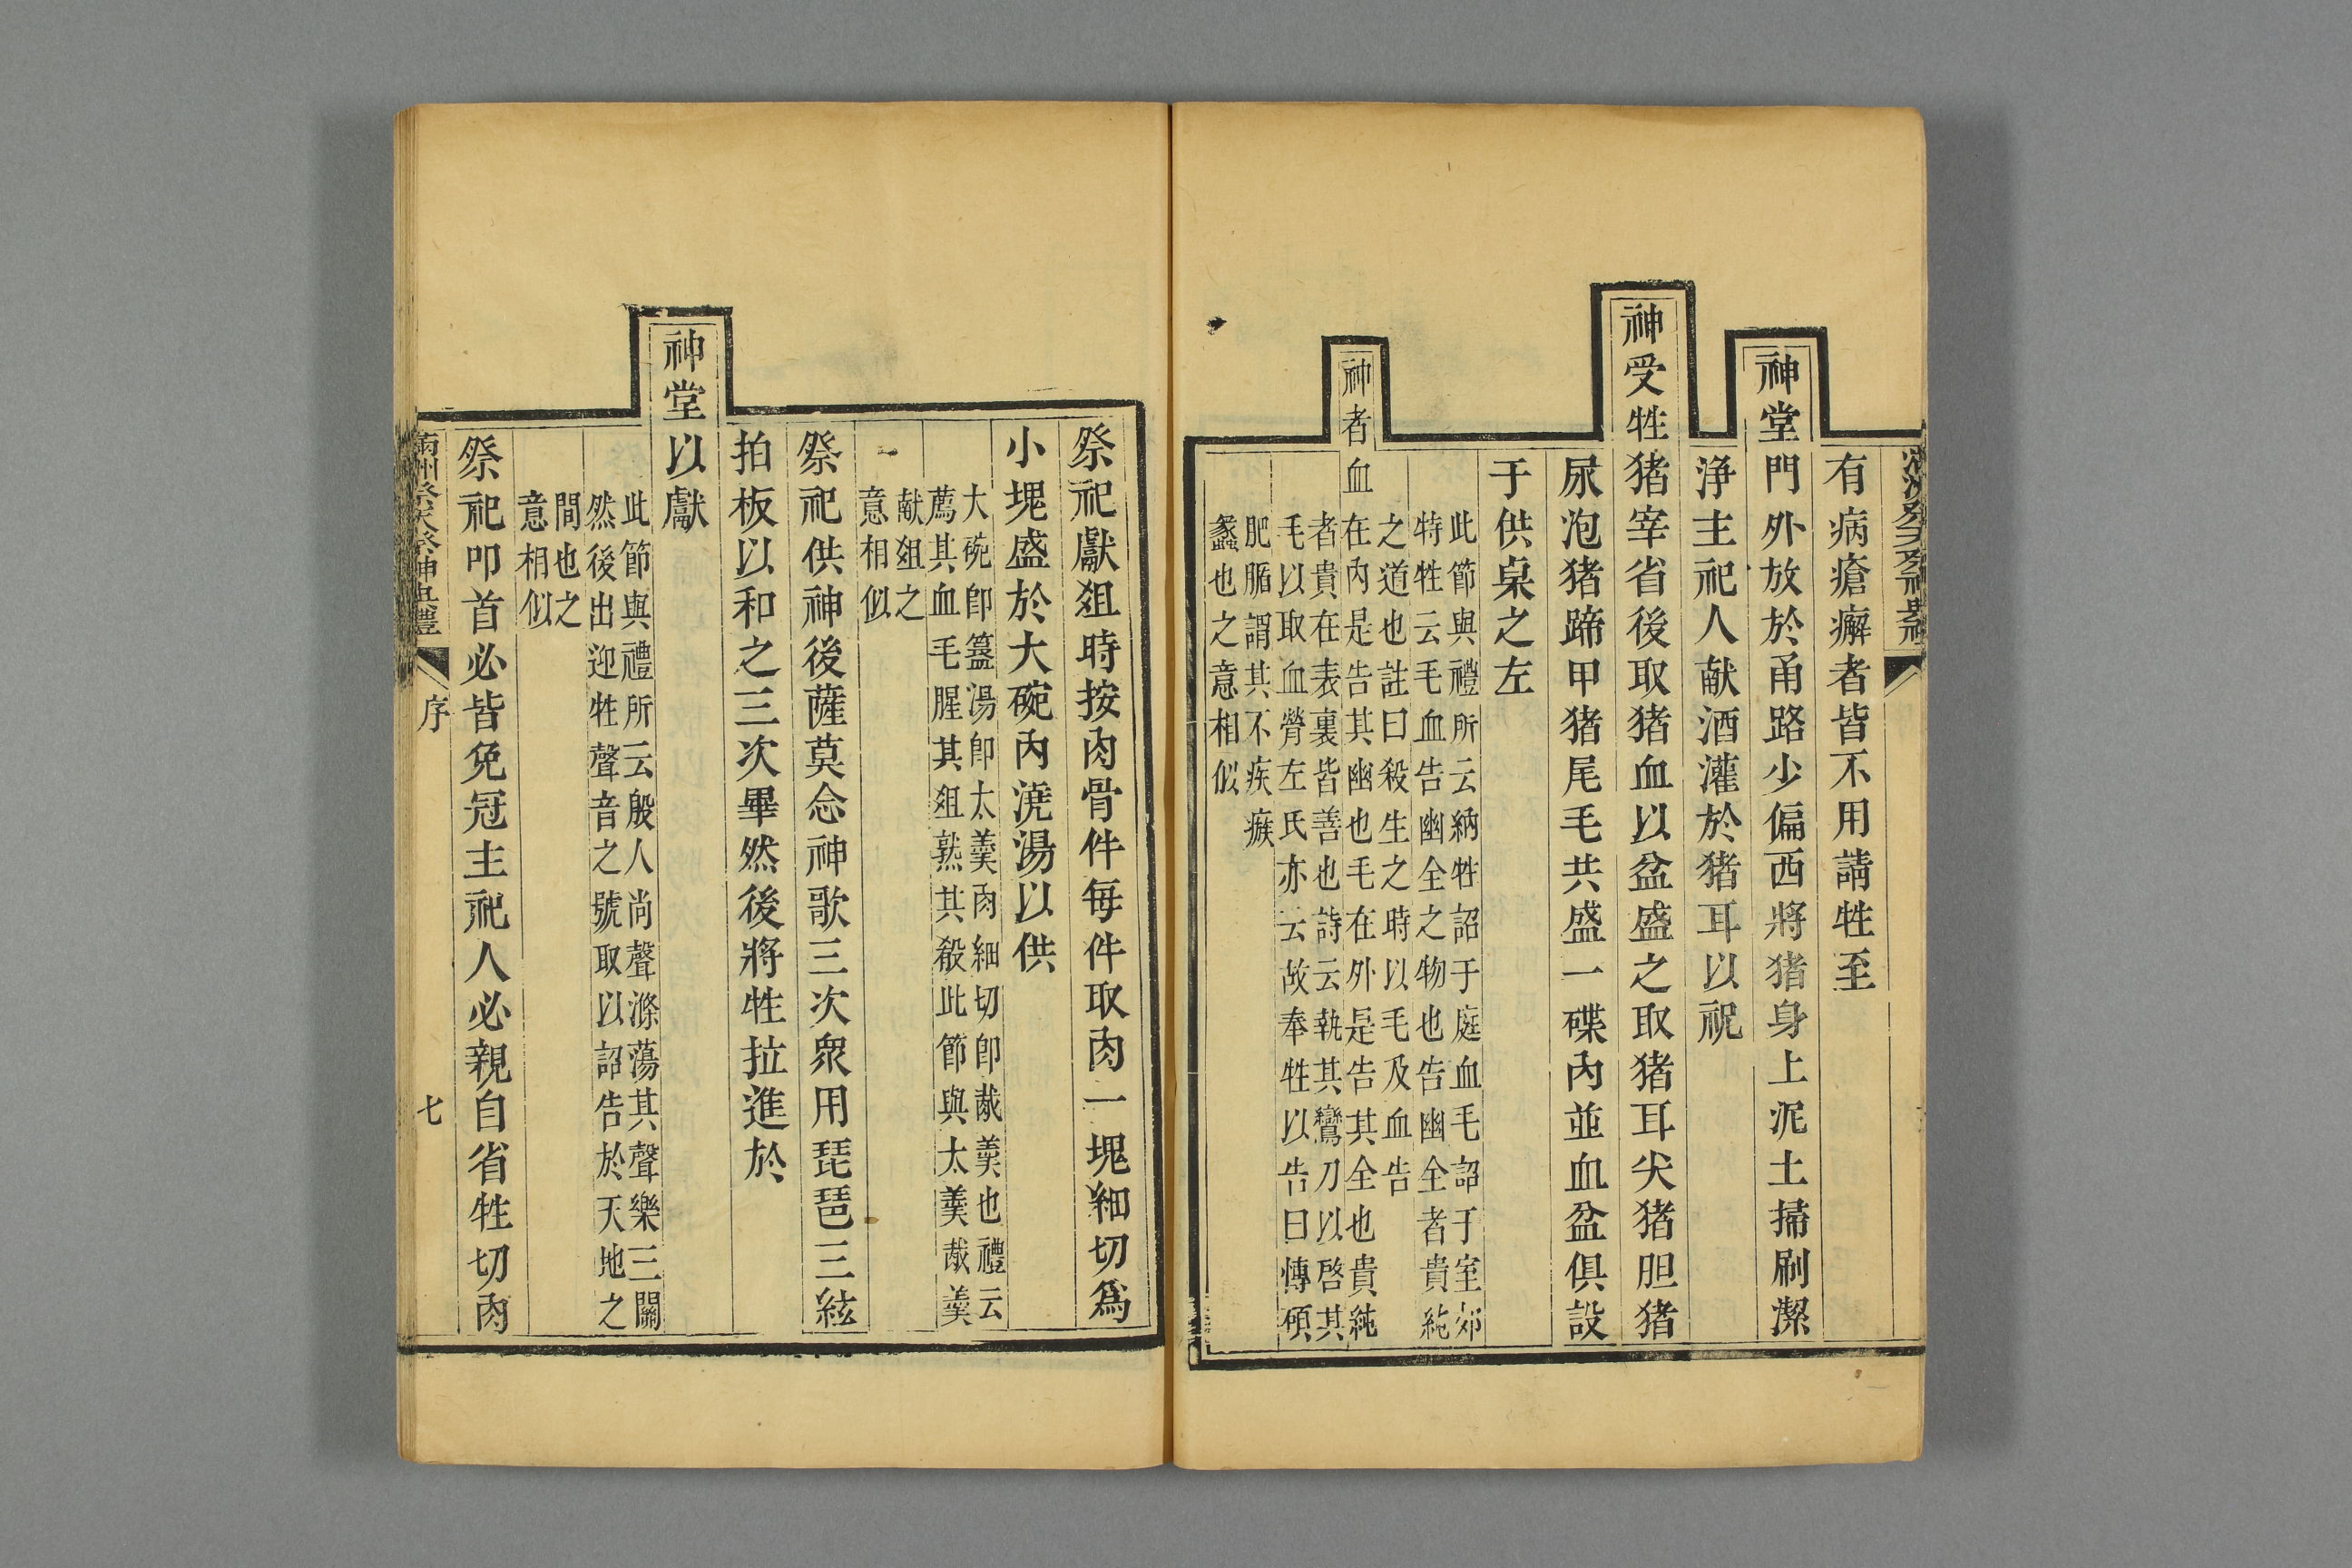 有病瘡癬者皆不用請牲至
神堂門外放於甬路少偏西將猪身上泥土掃刷潔
浄主祀人献酒灌於猪耳以祝
神受牲猪宰省後取猪血以盆盛之取猪耳尖猪胆猪
尿泡猪蹄甲猪尾毛共盛一碟內並血盆俱設
于供桌之左
此節與禮所云納牲詔于庭血毛詔于室郊
特牲云毛血告幽全之物也告幽全者貴純
之道也註曰殺生之時以毛及血告
神者血在內是告其幽也毛在外是告其全也貴純
者貴在表裏皆善也詩云執其鸞刀以啓其
毛以取血膋左氏亦云故奉牲以告曰博碩
肥腯謂其不疾瘯
蠡也之意相似
祭祀獻俎時按肉骨件每件取肉一塊細切爲
小塊盛於大碗內澆湯以供
大碗卽簋湯卽太羹肉細切卽胾羹也禮云
薦其血毛腥其俎熟其殽此節與太羹胾羹
献俎之
意相似
祭祀供神後薩莫念神歌三次衆用琵琶三絃
拍板以和之三次畢然後將牲拉進於
神堂以獻
此節與禮所云殷人尚聲滌蕩其聲樂三闋
然後出迎牲聲音之號取以詔告於天地之
間也之
意相似
祭祀叩首必皆免冠主祀人必親自省牲切肉
滿州祭天祭神典禮
序
七